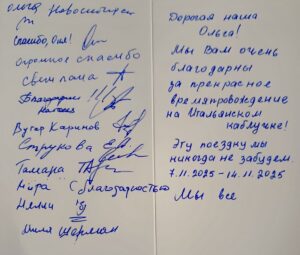 Ольга Новосибирск
Спасибо, Оля!
огромное спасибо
Светлана
Благодарим
Наталья
Вугар Каримов
Струкова Е
Тамара
Нора с благодарностью
Нелли
Шерман
Дорогая наша
Ольга!
Мы Вам очень
благодарны
за прекрасное
времяпровождение
на Итальянском
каблучке!
Эту поездку мы
никогда не забудем.
7.11.2025 – 14.11.2025
Мы все